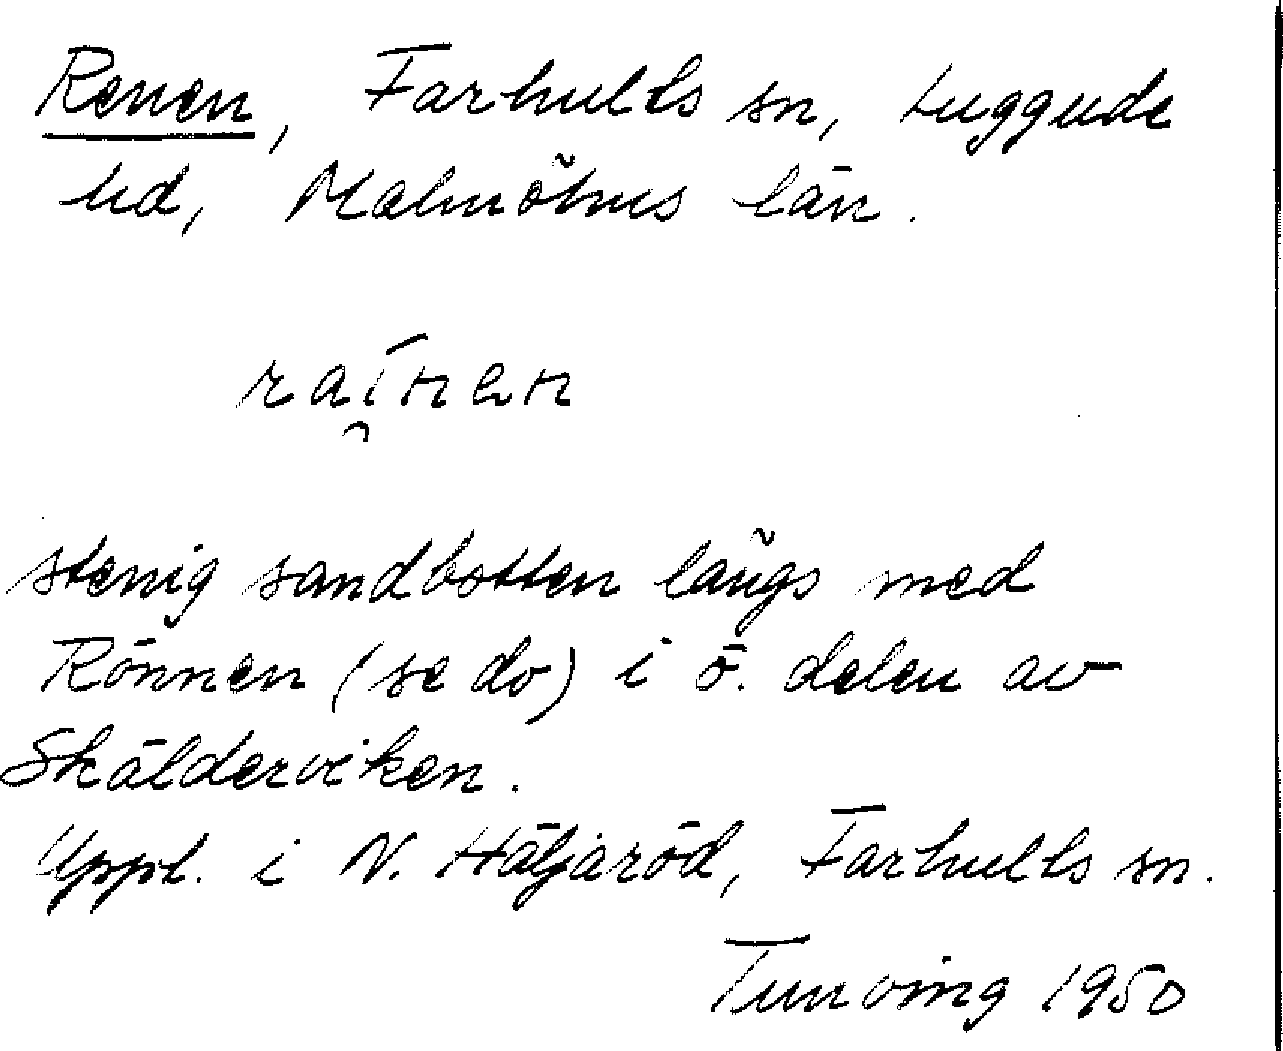 Renen, Farhults sn, Luggude
hd, Malmöhus län.
rai̯nen
stenig sandbotten längs med
Rönnen (se do) i ö. delen av
Skälderviken.
Uppt. i N. Häljaröd, Farhults sn.
Tunving 1950